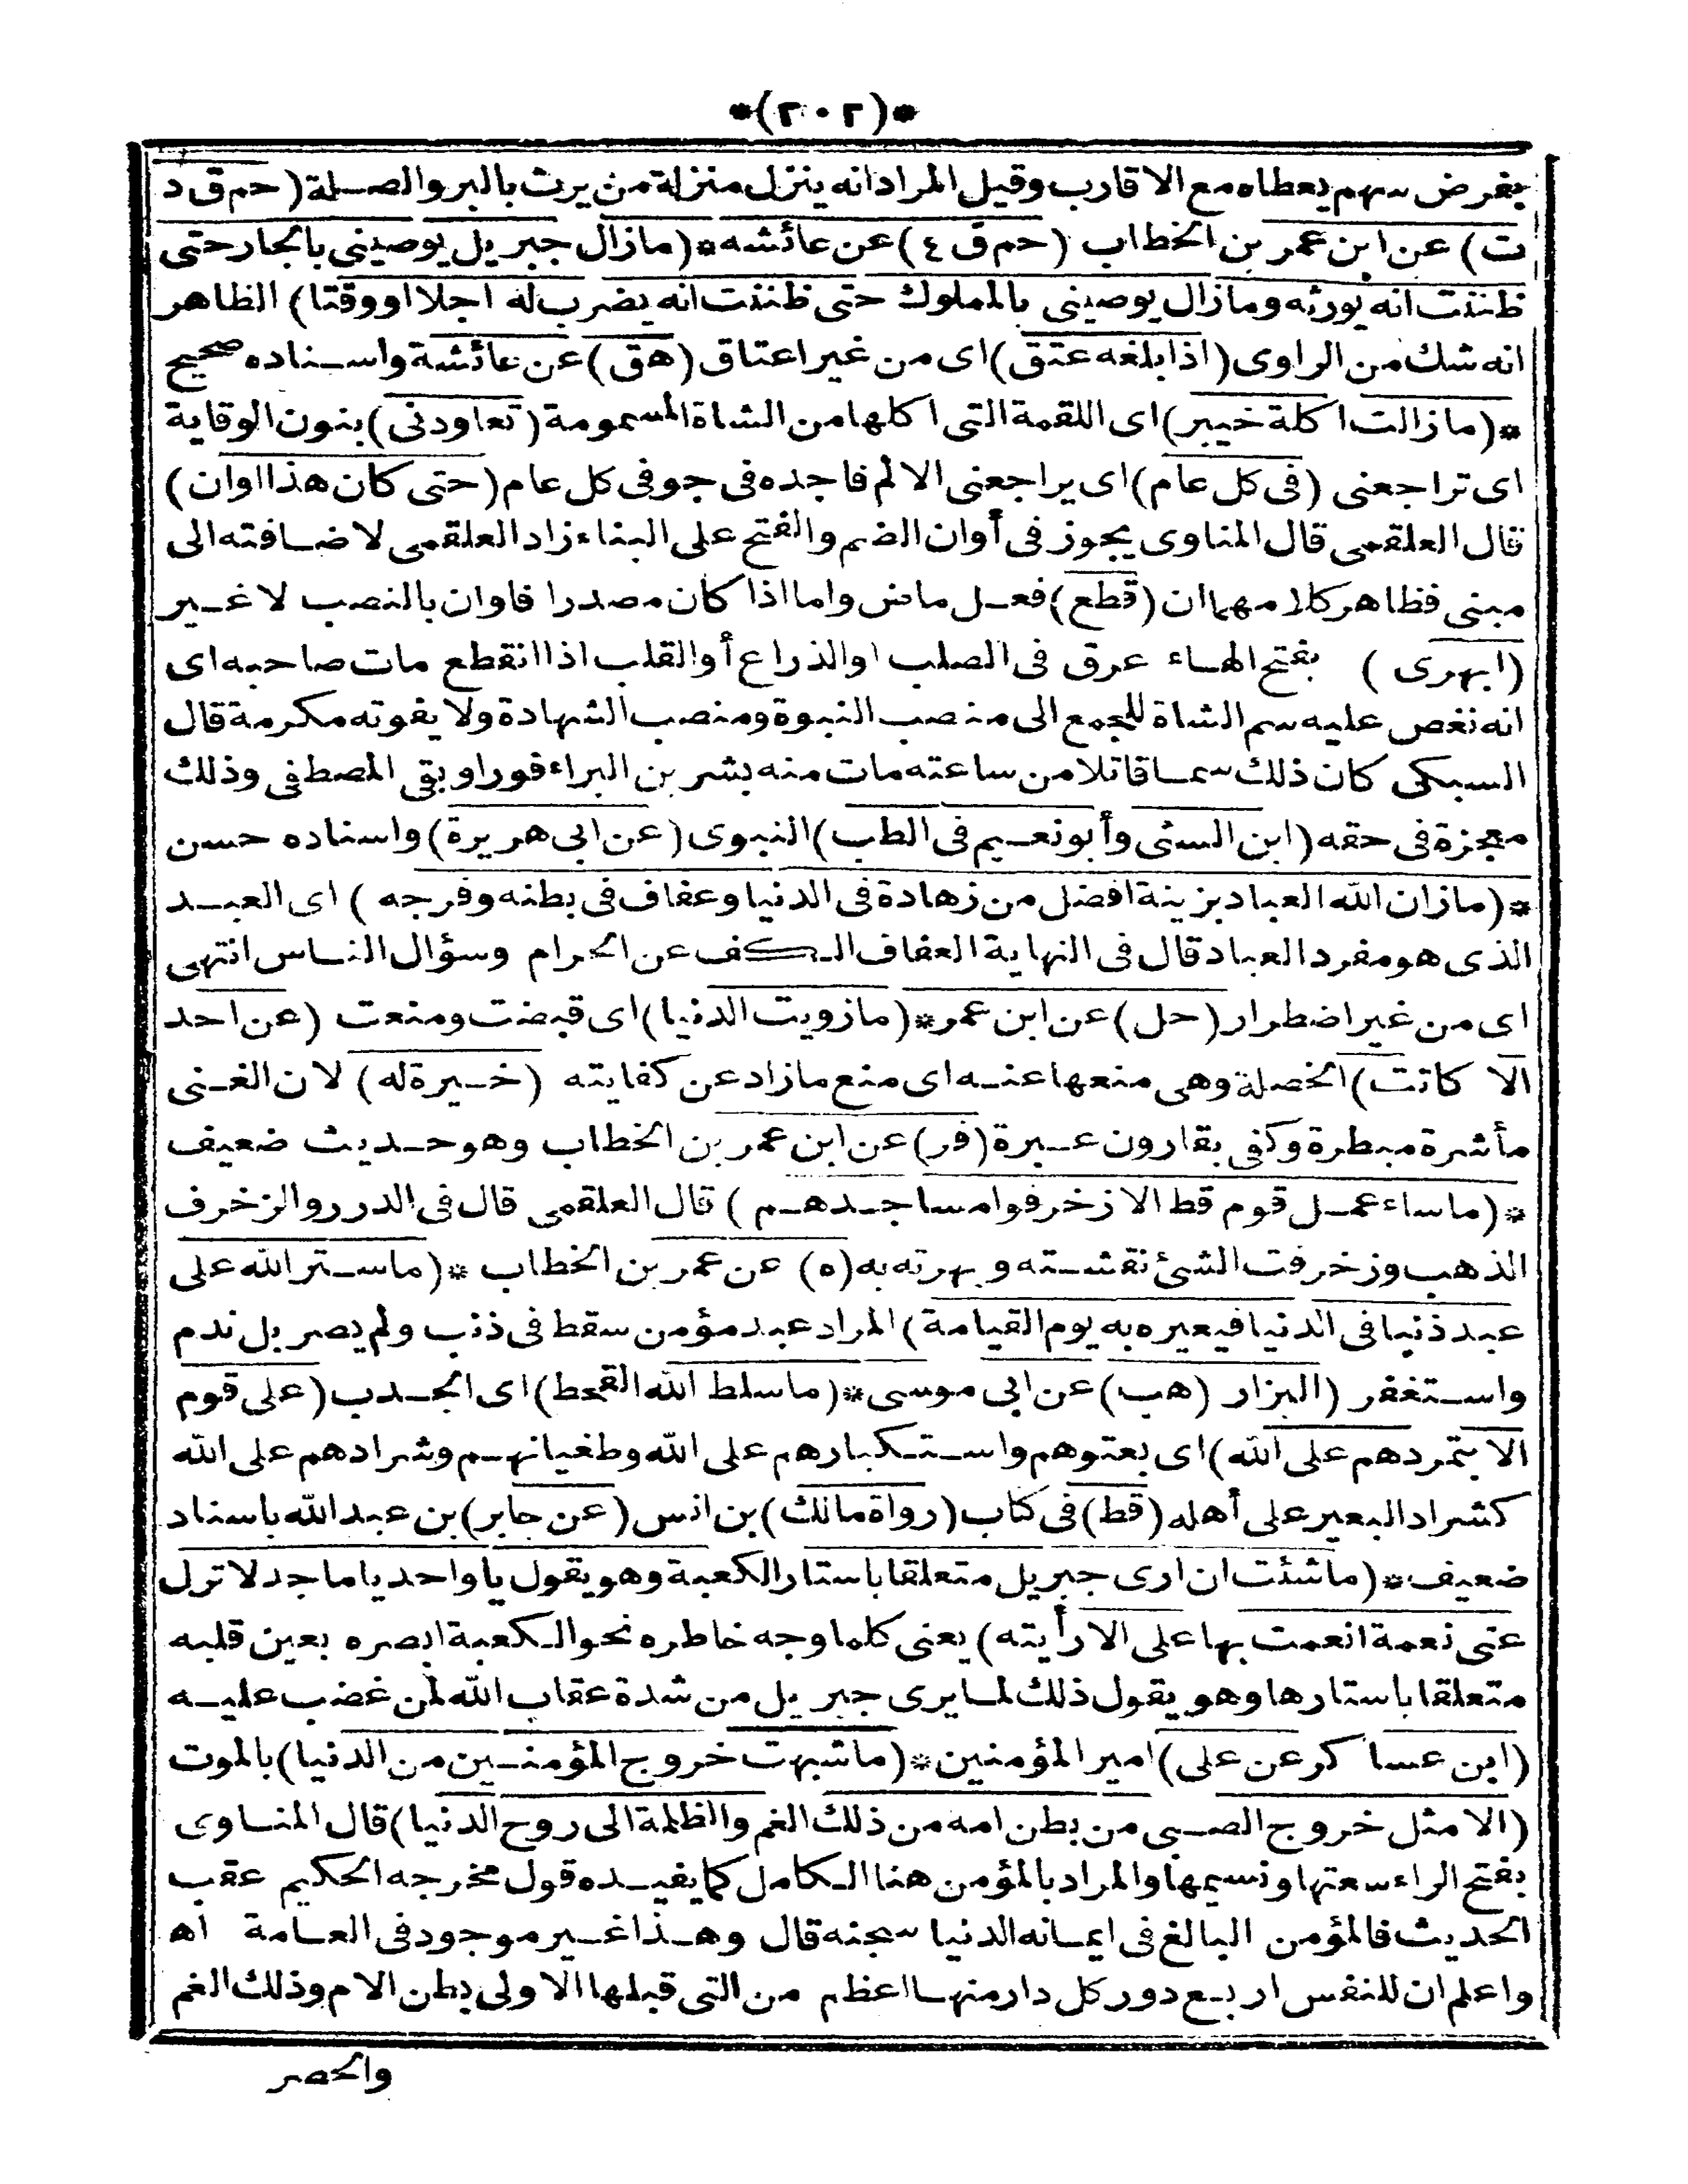 *(٢٠٢)*
بفرض سهم يعطاه مع الاقارب وقيل المراد انه ينزل منزلة من يرث بالبر والصلة (حم ق د
ت) عن ابن عمر بن الخطاب (حم ق ٤) عن عائشه *(مازال جبريل يوصينى بالجار حتى
ظننت انه يورثه ومازال يوصينى بالمملوك حتى ظننت انه يضرب له اجلا او وقتا) الظاهر
انه شك من الراوى (اذا بلغه عتق) اى من غير اعتاق (هق) عن عائشة واسناده صحيح
*(مازالت اكلة خيبر) اى اللقمة التى اكلها من الشاة المسمومة (تعاودنى) بنون الوقاية
اى تراجعنى (فى كل عام) اى يراجعنى الالم فاجده فى جوفى كل عام (حتى كان هذا اوان)
قال العلقمى قال المناوى يجوز فى أوان الضم والفتح على البناء زاد العلقمى لاضافته الى
مبنى فظاهر كلامهما ان (قطع) فعل ماض واما اذا كان مصدرا فاوان بالنصب لا غير
(ابهرى) بفتح الهاء عرق فى الصلب او الذراع أو القلب اذا انقطع مات صاحبه اى
انه نغص عليه سم الشاة للجمع الى منصب النبوة ومنصب الشهادة ولا يفوته مكرمة قال
السبكى كان ذلك سما قاتلا من ساعته مات منه بشر بن البراء فورا وبقى المصطفى وذلك
معجزة فى حقه (ابن السنى وأبو نعيم فى الطب) النبوى (عن ابى هريرة) واسناده حسن
*(مازان الله العباد بزينة افضل من زهادة فى الدنيا وعفاف فى بطنه وفرجه) اى العبد
الذى هو مفرد العباد قال فى النهاية العفاف الكف عن الحرام وسؤال الناس انتهى
اى من غير اضطرار (حل) عن ابن عمر *(مازويت الدنيا) اى قبضت ومنعت (عن احد
الا كانت) الخصلة وهى منعها عنه اى منع مازاد عن كفايته (خيرة له) لان الغنى
مأشرة مبطرة وكفى بقارون عبرة (فر) عن ابن عمر بن الخطاب وهو حديث ضعيف
*(ماساء عمل قوم قط الا زخرفوا مساجدهم) قال العلقمى قال فى الدرر والزخرف
الذهب وزخرفت الشئ نقشته وبهرته به (ه) عن عمر بن الخطاب *(ماستر الله على
عبد ذنبا فى الدنيا فيعيره به يوم القيامة) المراد عبد مؤمن سقط فى ذنب ولم يصر بل ندم
واستغفر (البزار (هب) عن ابى موسى *(ماسلط الله القحط) اى الجدب (على قوم
الا بتمردهم على الله) اى بعتوهم واستكبارهم على الله وطغيانهم وشرادهم على الله
كشراد البعير على أهله (قط) فى كتاب (رواة مالك) بن انس (عن جابر) بن عبد الله باسناد
ضعيف *(ماشئت ان ارى جبريل متعلقا باستار الكعبة وهو يقول يا واحد يا ماجد لا تزل
عنى نعمة انعمت بها على الا رأيته) يعنى كلما وجه خاطره نحو الكعبة ابصره بعين قلبه
متعلقا باستارها وهو يقول ذلك لما يرى جبريل من شدة عقاب الله لمن غضب عليه
(ابن عساكر عن على) امير المؤمنين *(ماشبهت خروج المؤمنين من الدنيا) بالموت
(الا مثل خروج الصبى من بطن امه من ذلك الغم والظلمة الى روح الدنيا) قال المناوى
بفتح الراء سعتها ونسيمها والمراد بالمؤمن هنا الكامل كما يفيده قول مخرجه الحكيم عقب
الحديث فالمؤمن البالغ فى ايمانه الدنيا سجنه قال وهذا غير موجود فى العامة اه
واعلم ان للنفس اربع دور كل دار منها اعظم من التى قبلها الاولى بطن الام وذلك الغم
والحصر